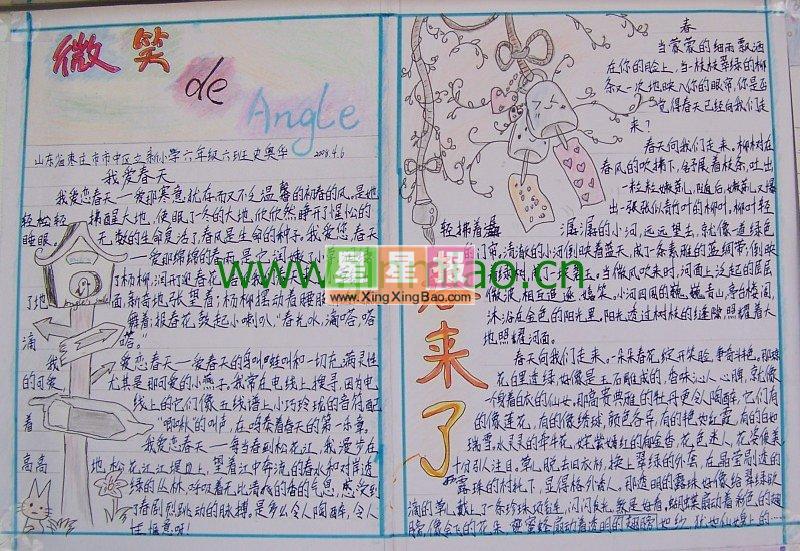 微笑
de
Angle
山东临枣庄市市中区立新小学六年级六班史奥华 2008.4.6
我爱春天
我爱恋春天—爱那寒意犹存而又不乏温馨的初春的风。是她
轻轻松松拂醒大地,使眠了一冬的大地欣欣然睁开了惺忪的
睡眼。无数的生命复活了,春风是生命的种子。我爱您,春天
—爱那绵绵的春雨。是它润嫩了小草
了杨柳,润刑迎春花
了地面,新奇地张望着;杨柳摆动着腰肢
舞着;报春花鼓起小喇叭,"春光水,滴嗒,嗒
滴嗒。"
我爱恋春天—爱春天的鸟叫蛙叫和一切充满灵性
的可爱。尤其是那可爱的小燕子。我常在电线上搜寻,因为电
线上的它们像五线谱上小巧玲珑的音符配
着"唧啾"的叫声,在鸣奏着春天的第一乐章。
我爱恋春天—每当春到松花江,我漫步在
高高地松花江江堤上,望着江中奔流的春水和对岸透
绿的丛林,呼吸着无比清aroma的香的气息,感受到
了春剧烈跳动的脉搏。是多么令人陶醉,令人
春
当蒙蒙的细雨飘洒
在你的脸上,当一枝枝翠绿的柳
条又一次地映入你的眼帘,你是否
觉得春天已经向我们走
来?
春天向我们走来。柳树在
春风的吹拂下,舒展着枝条,吐出
一粒粒嫩芽,随后,嫩芽又爆
出一张张似青竹叶的柳叶。柳叶轻
轻拂着潺潺的小河,远远望去,就像一道绿色
的门帘。清澈的小河倒映着蓝天,成了一条素雅的蓝绸带;倒映
着绿树,成了一
当微风吹来时,河面上泛起的层层
微波,相互追逐、嬉笑。小河四周的巍巍青山,亭台楼阁,
沐浴在金色的阳光里。阳光透过树林的缝隙照耀着大
地,照耀河面。
春天向我们走来。一朵朵春花绽开笑脸,争奇斗艳。那
花白里透绿,好像是玉石雕成的,香味沁人心脾,就像
一身着白衣的仙女,那高贵典雅的牡丹更令人陶醉,它们有
的像莲花,有的像绣球,颜色各异,有的艳如红霞,有的白如
瑞雪,水灵灵的牵牛花,姹紫嫣红的郁金香,花色迷人,花姿优美
十分引人注目。草儿脱去旧衣衫,换上翠绿的外套,在晶莹剔透的
露珠的衬托下,显得格外诱人。那透明的露珠好像给翠绿欲
滴的草儿戴上了一条珍珠项链,闪闪发光,煞是好看。蝴蝶煽动着彩色的翅
膀,像会飞的花朵。蜜蜂扇动着透明的翅膀
来了
www.
bao.cn
星星报
www.XingXingBao.com